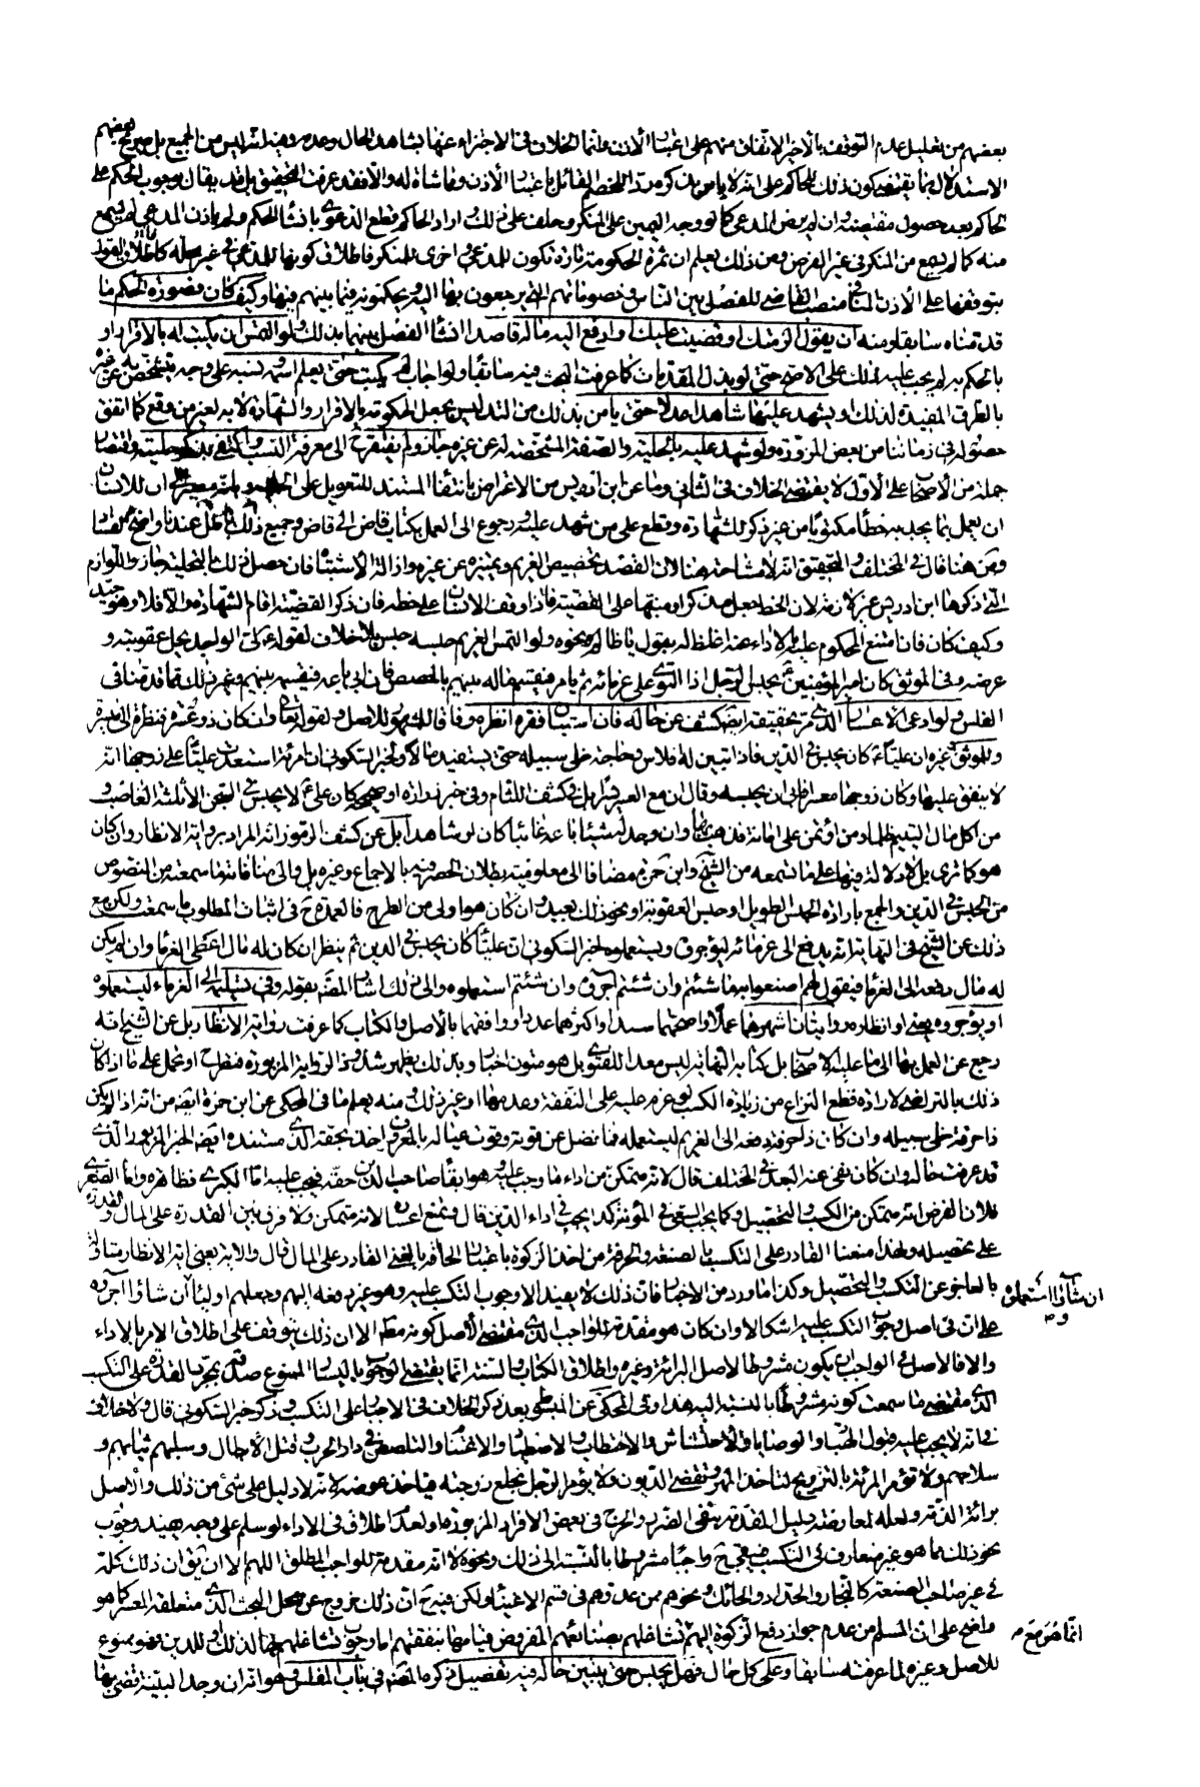 بعضهم من تعليل عدم التوقف بالأخير الاتفاق منهم على اعتبار الأذن وانما الخلاف في الاجتزاء عنها بشاهد الحال وعدمه وفيه انه ليس من الجميع بل صريح بعضهم
الاستدلال بما يقتضى كون ذلك للحاكم على انه لا بأس بذكره مرتدا للخصم القائل باعتبار الأذن ومماشاة له والا فقد عرفت التحقيق بل قد يقال بوجوب الحكم على
الحاكم بعد حصول مقتضيه وان لم يرض المدعى كما لو وجه اليمين على المنكر وحلف على ذلك واراد الحاكم قطع الدعوى بانشاء الحكم ولم يأذن المدعى له
منه كما لم يسمع من المنكر في غير الفرض ومن ذلك يعلم ان ثمرة الحكومة تارة تكون للمدعى واخرى للمنكر فاطلاق كونها للمدعى في غير محله كاطلاق القول
بتوقفها على الأذن للقاضى للفصل بين الناس في خصوماتهم التي يرجعون بها اليه ويحكمونه فيما بينهم فيها وكيف كان فصورة الحكم ما
قدمناه سابقا ومنه ان يقول الزمتك او قضيت عليك او ادفع اليه ماله قاصدا انشاء الفصل بينهما بذلك ولو التمس ان يكتب له بالاقرار او
بالحكم به لم يجب عليه ذلك على الاصح حتى لو بذل المقدمات كما عرفت البحث فيه سابقا ولو اجاب لم يكتب حتى يعلم اسمه ونسبه على وجه يتشخص به عن غيره
بالطرق المفيدة لذلك او يشهد عليهما شاهدا عدل حتى يأمن بذلك من التدليس بجعل المحكوم به بالاقرار والشهادة لا به لغير من وقع كما اتفق
حصوله في زماننا من بعض المزورة ولو شهد عليه بالحلية والصفة المشخصة له عن غيره جاز ولم يفتقر الى معرفة النسب واكتفى بذكر حليته
جملة من الأصحاب على الأول لا يقتضى الخلاف في الثاني وما عن ابن ادريس من الاعتراض بانتفاء المستند للتعويل على الحلية ان للانسان
ان يعمل بما يجد به خطا مكتوبا من غير ذكر للشهادة وقطع على من شهد عليه ورجوع الى العمل بكتاب قاض الى قاض وجميع ذلك باطل عندنا واضح الفساد
ومن هنا قال في المختلف والتحقيق انه لا مشاحة هنا لان القصد تخصيص الغريم وتميزه عن غيره وازالة الاشتباه فان حصل ذلك بالتحلية جاز واللوازم
التي ذكرها ابن ادريس غير لازمة لان الخط جعل مذكرا ومنبها على القضية فاذا وقف الانسان على خطه فان ذكر القضية اقام الشهادة والا فلا وهو جيد
وكيف كان فان امتنع المحكوم عليه بالاداء عنه اغلظ له بقول يا ظالم ونحوه ولو التمس الغريم حبسه حبس بلا خلاف لقوله لى الواجد يحل عقوبته و
عرضه وفى الموثق كان امير المؤمنين ع يحبس الرجل اذا التوى على غرمائه ثم يأمر فيقسم ماله بينهم بالحصص فان ابى باعه فيقسمه بينهم وغير ذلك مما قدمناه في
الفلس ولو ادعى الاعسار الذى مر تحقيقه ايضا كشف عن حاله فان استبان فقره انظره وفاقا للمشهور للاصل ولقوله تعالى وان كان ذو عسرة فنظرة الى ميسرة
وللموثق وغيره ان عليا ع كان يحبس في الدين فاذا تبين له افلاس وحاجة خلى سبيله حتى يستفيد مالا ولخبر السكونى ان امرئة استعدت عليا على زوجها انه
لا ينفق عليها وكان زوجها معسرا فابى ان يحبسه وقال ان مع العسر يسرا بل في كشف اللثام وفى خبر زرارة او صحيحه كان على ع لا يحبس في السجن الا ثلثة الغاصب و
من اكل مال اليتيم ظلما ومن اؤتمن على امانة فذهب بها وان وجد له شيئا باعه غائبا كان او شاهدا بل عن كشف الرموز انه المراد برواية الانظار وان كان
هو كما ترى بل لا دلالة فيها على ما تسمعه من الشيخ وابن حمزة مضافا الى معلومية بطلان الحصر فيه بالاجماع وغيره بل والى منافاتها سمعته من النصوص
من الحبس في الدين والجمع بارادة الحبس الطويل او حبس العقوبة او نحو ذلك بعيد وان كان هو اولى من الطرح فالعمدة ح في اثبات المطلوب ما سمعت ولكن مع
ذلك عن الشيخ في النهاية انه يدفع الى غرمائه ليؤجروه ويستعملوه لخبر السكونى ان عليا كان يحبس في الدين ثم ينظر ان كان له مال اعطى الغرماء وان لم يكن
له مال دفعه الى الغرماء فيقول لهم اصنعوا به ما شئتم وان شئتم آجروه وان شئتم استعملوه والى ذلك اشار المصنف بقوله وفى تسليمه الى الغرماء ليستعملوه
او يؤجروه يعنى او انظاره روايتان اشهرهما عملا واصحهما سندا واكثرهما عددا واوفقهما بالاصل والكتاب كما عرفت رواية الانظار بل عن الشيخ انه
رجع عن العمل بها الى ما عليه الاصحاب بل كتابه النهاية ليس معدا للفتوى بل هو متون اخبار وبذلك يظهر شذوذ الرواية المزبورة فتطرح او تحمل على ما اذا كان
ذلك بالتراضى لارادة قطع النزاع من زيادة الكسب لو غرم عليه على النفقة وعدمها او غير ذلك ومنه يعلم ما في المحكى عن ابن حمزة ايضا من انه اذا لم يكن
ذا حرفة خلى سبيله وان كان ذا حرفة دفعه الى الغريم ليستعمله فما فضل عن قوته وقوت عياله بالمعروف اخذ بحقه الذى مستنده ايضا الخبر المزبور الذى
قد عرفت حاله وان كان نفى عنه البعد في المختلف قال لانه متمكن من اداء ما وجب عليه وهو ايفاء صاحب الدين حقه فيجب عليه اما الكبرى فظاهرة واما الصغرى
فلان الفرض انه متمكن من الكسب والتحصيل وكما يجب السعى في المؤنة كذا يجب في اداء الدين قال ونمنع اعساره لانه متمكن ولا فرق بين القدرة على المال والقدرة
على تحصيله ولهذا منعنا القادر على التكسب بالصنعة والحرفة من اخذ الزكوة باعتبار الحاقه بالغنى القادر على المال قال والاية يعنى اية الانظار متأولة
بالعاجز عن التكسب والتحصيل وكذا ما ورد من الاخبار فان ذلك لا يفيد الا وجوب التكسب عليه وهو غير دفعه اليهم وجعلهم اولياء ان شاؤا آجروه
ان شاؤا استعملوه
على ان في اصل وجوب التكسب عليه اشكالا وان كان هو مقدمة للواجب الذى مقتضى الاصل كونه مطلقا الا ان ذلك يتوقف على اطلاق الامر بالاداء
والا فالاصل في الواجب ان يكون مشروطا لاصل البرائة وغيره واطلاق الكتاب والسنة انما يقتضى الوجوب باليسار الممنوع صدقه بمجرد القدرة على التكسب
الذى مقتضى ما سمعت كونه مشروطا بالنسبة اليه هذا وفى المحكى عن المبسوط بعد ذكر الخلاف في الاجبار على التكسب وذكر خبر السكونى قال ولا خلاف
في انه لا يجب عليه قبول الهبات والوصايا والاحتشاش والاحتطاب والاصطياد والاغتنام والتلصص في دار الحرب وقتل الابطال وسلبهم ثيابهم و
سلاحهم ولا تؤمر المرئة بالتزويج لتأخذ المهر وتقضى الديون ولا يؤمر الرجل بخلع زوجته فيأخذ عوضه لانه لا دليل على شئ من ذلك والاصل
برائة الذمة ولعله لمعارضة دليل المقدمة بنفى الضرر والحرج في بعض الافراد المزبورة او لعدم اطلاق في الاداء لو سلم على وجه يفيد وجوب
نحو ذلك مما هو غير متعارف في التكسب فيبقى ح واجبا مشروطا بالنسبة الى ذلك ونحوه لا انه مقدمة للواجب المطلق اللهم الا ان يق ان ذلك كله
في غير صاحب الصنعة كالنجار والحداد والحائك ونحوهم ممن عدوهم في قسم الاغنياء ولكن فيه ح ان ذلك خروج عن محل البحث الذى متعلقه المعسر كما هو
واضح على ان المسلم من عدم جواز دفع الزكوة اليهم تشاغلهم بصنائعهم المفروض قيامها بنفقتهم اما وجوب تشاغلهم بها لذلك وللدين فهو ممنوع
انما هو مع
للاصل وغيره لما عرفته سابقا وعلى كل حال فهل يحبس حتى يتبين حاله فيه تفصيل ذكره المصنف في باب المفلس وهو انه ان وجد البينة قضى بها